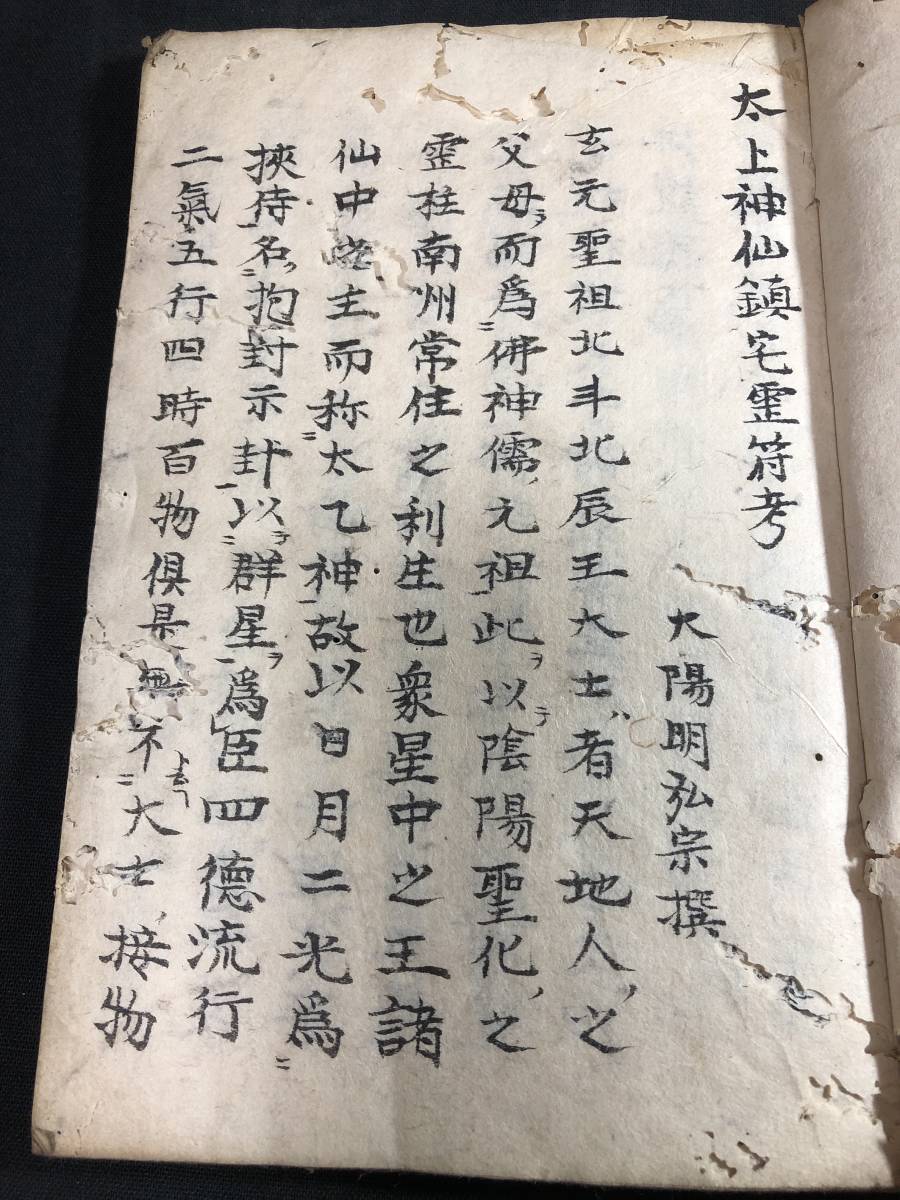 太上神仙鎮宅霊符考
大陽明弘宗撰
玄元聖祖北斗北辰王大士ハ者天地人ノ之
父母ヲ而爲ニ佛神儒ノ元祖此ヲ以テ陰陽聖化ノ之
霊柱南州常住之利生也衆星中之王諸
仙中之主而称ニ太乙神一故以日月二光爲ニ
挟侍名ヲ抱封示卦一以ヲ群星ヲ爲臣四德流行
二氣五行四時百物俱是無不ニ大士ノ接物